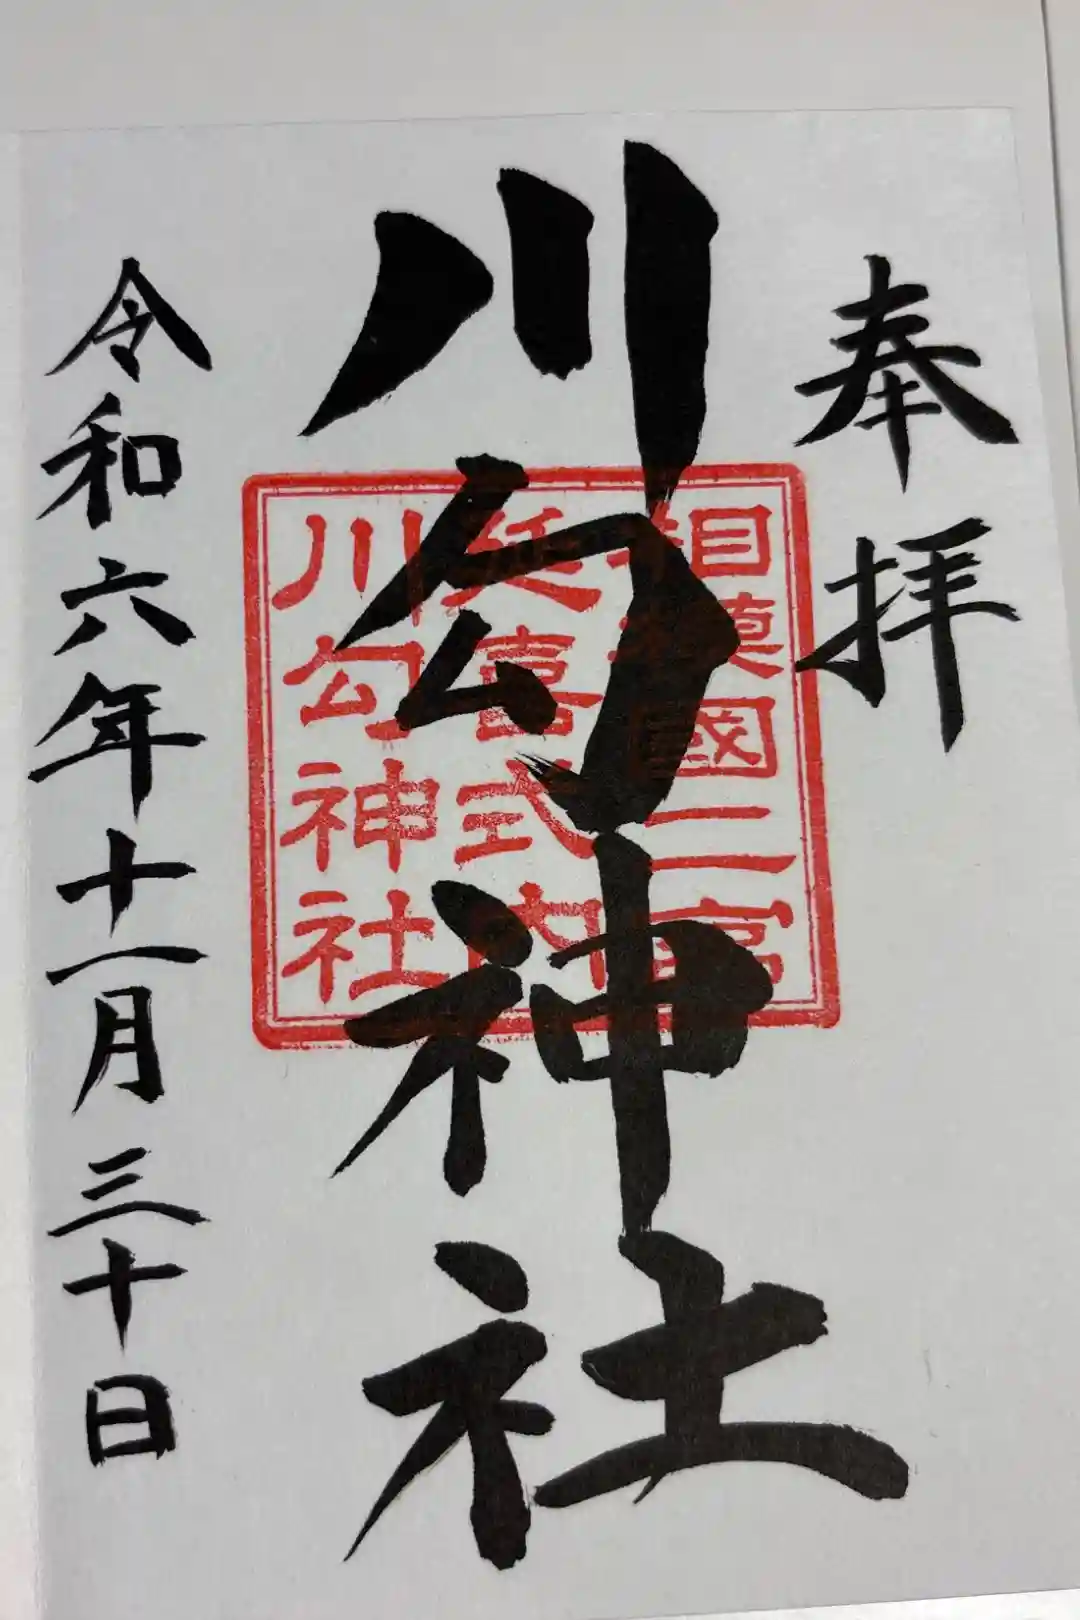 奉拝
川勾神社
相模國二宮
延喜式内
川勾神社
令和六年十一月三十日